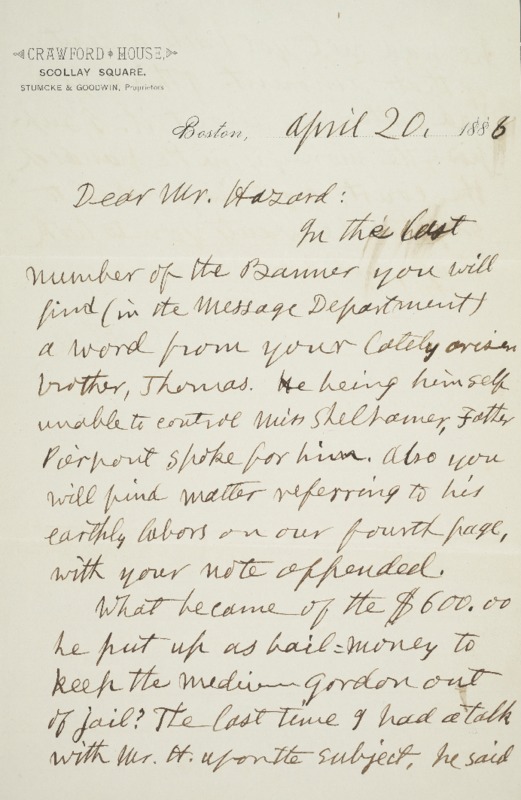 CRAWFORD HOUSE,
SCOLLAY SQUARE.
STUMCKE & GOODWIN, Proprietors
Boston, April 20. 1886
Dear Mr. Hazard:
In the last
number of the Banner you will
find (in the Message Department)
a word from your lately arisen
brother, Thomas. He being himself
unable to control Miss Shelhamer, Father
Pierpont spoke for him. Also you
will find matter referring to his
earthly labors on our fourth page,
with your note appended.
What became of the $600.00
he put up as bail=money to
keep the medium Gordon out
of jail? The last time I had a talk
with Mr. H. upon the subject, he said